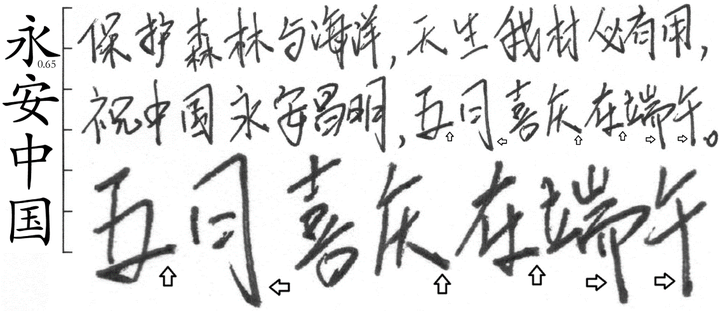 永安中国
0.65
保护森林与海洋，天生我材必有用，
祝中国永安昌明，五月喜庆在端午。
五月喜庆在端午